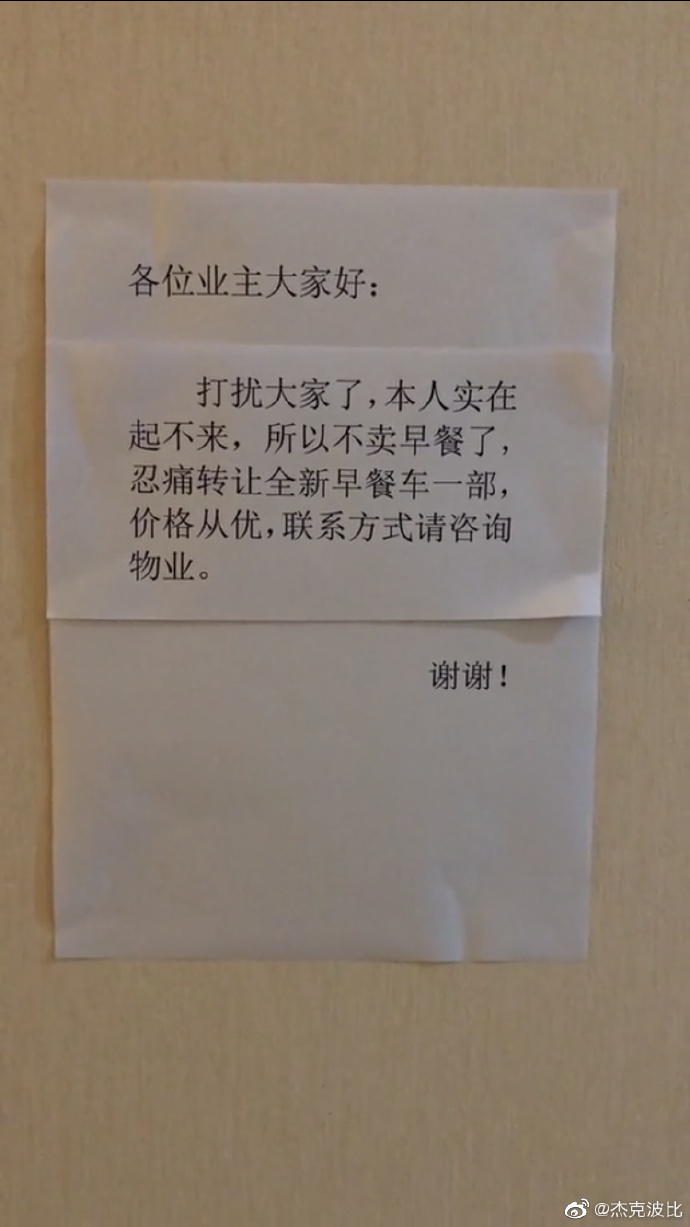 各位业主大家好：
打扰大家了，本人实在
起不来，所以不卖早餐了，
忍痛转让全新早餐车一部，
价格从优，联系方式请咨询
物业。
谢谢！
@杰克波比